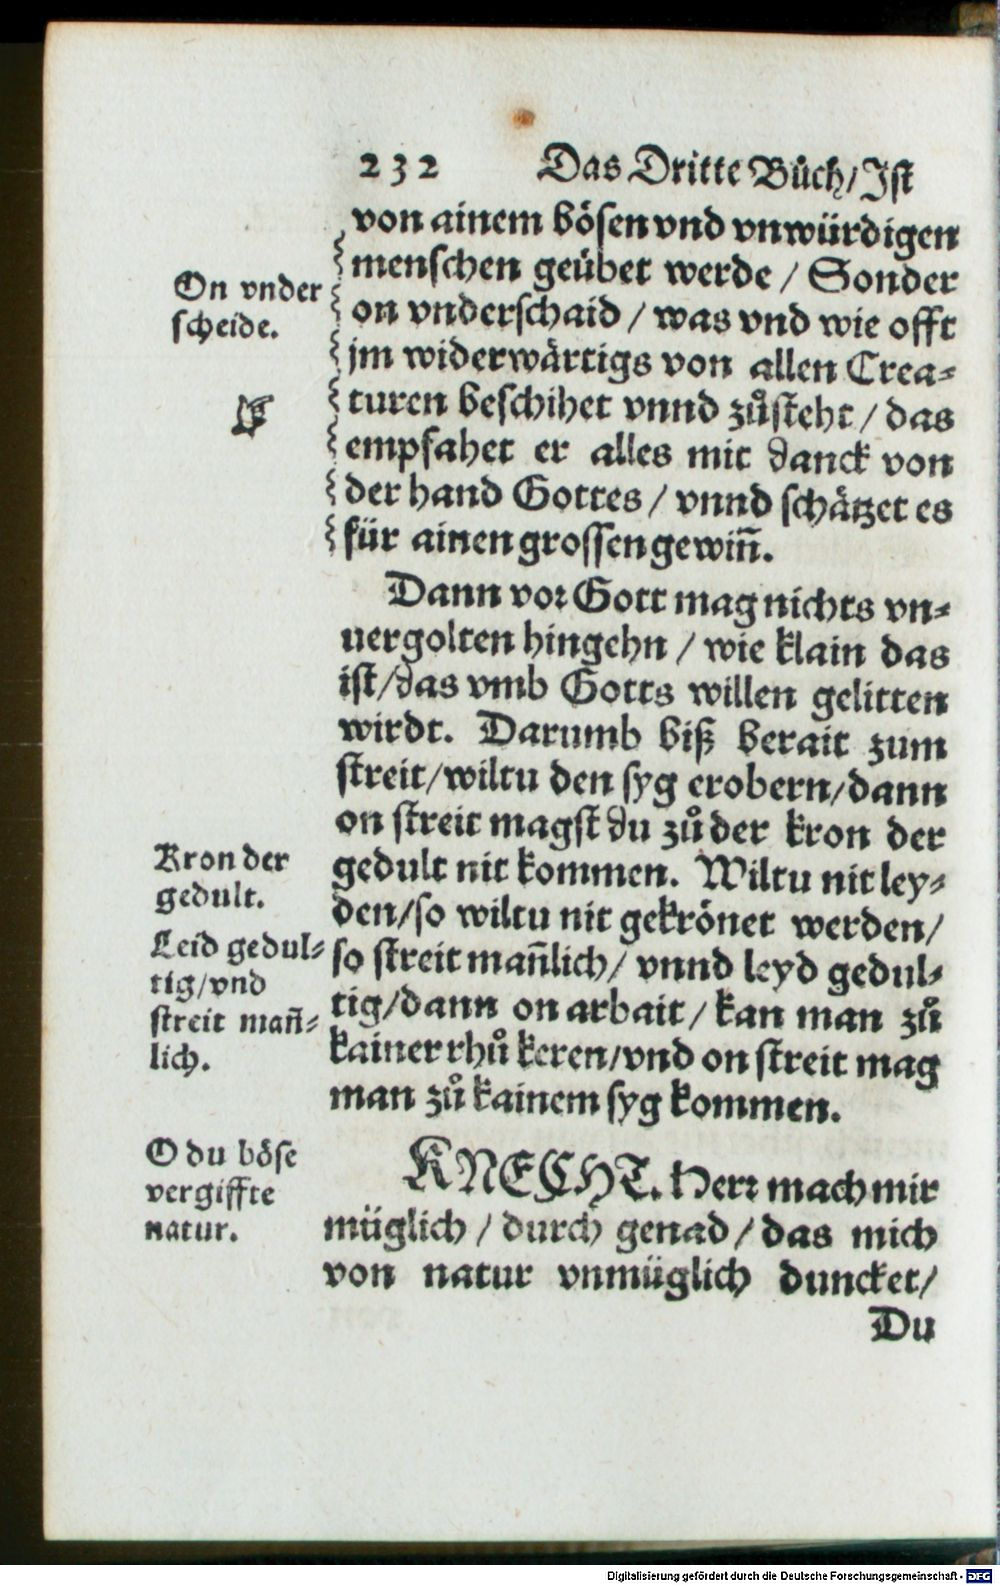 232 Das Dritte Bůch/ Ist
von ainem bösen vnd vnwürdigen
menschen geübet werde / Sonder
on vnderschaid / was vnd wie offt
jm widerwärtigs von allen Crea-
turen beschihet vnnd zůsteht / das
empfahet er alles mit danck von
der hand Gottes / vnnd schätzet es
für ainen grossen gewiñ.
On vnder
scheide.
Dann vor Gott mag nichts vn-
uergolten hingehn / wie klain das
ist/das vmb Gotts willen gelitten
wirdt. Darumb biß berait zum
streit/wiltu den syg erobern/dann
on streit magst du zů der kron der
gedult nit kommen. Wiltu nit ley-
den/so wiltu nit gekrönet werden/
so streit mañlich/ vnnd leyd gedul-
tig/dann on arbait / kan man zů
kainer rhů keren/vnd on streit mag
man zů kainem syg kommen.
Kron der
gedult.
Leid gedul-
tig/vnd
streit mañ-
lich.
KNECHT. Herr mach mir
müglich / durch genad / das mich
von natur vnmüglich duncket/
O du böse
vergiffte
natur.
Du
Digitalisierung gefördert durch die Deutsche Forschungsgemeinschaft - DFG